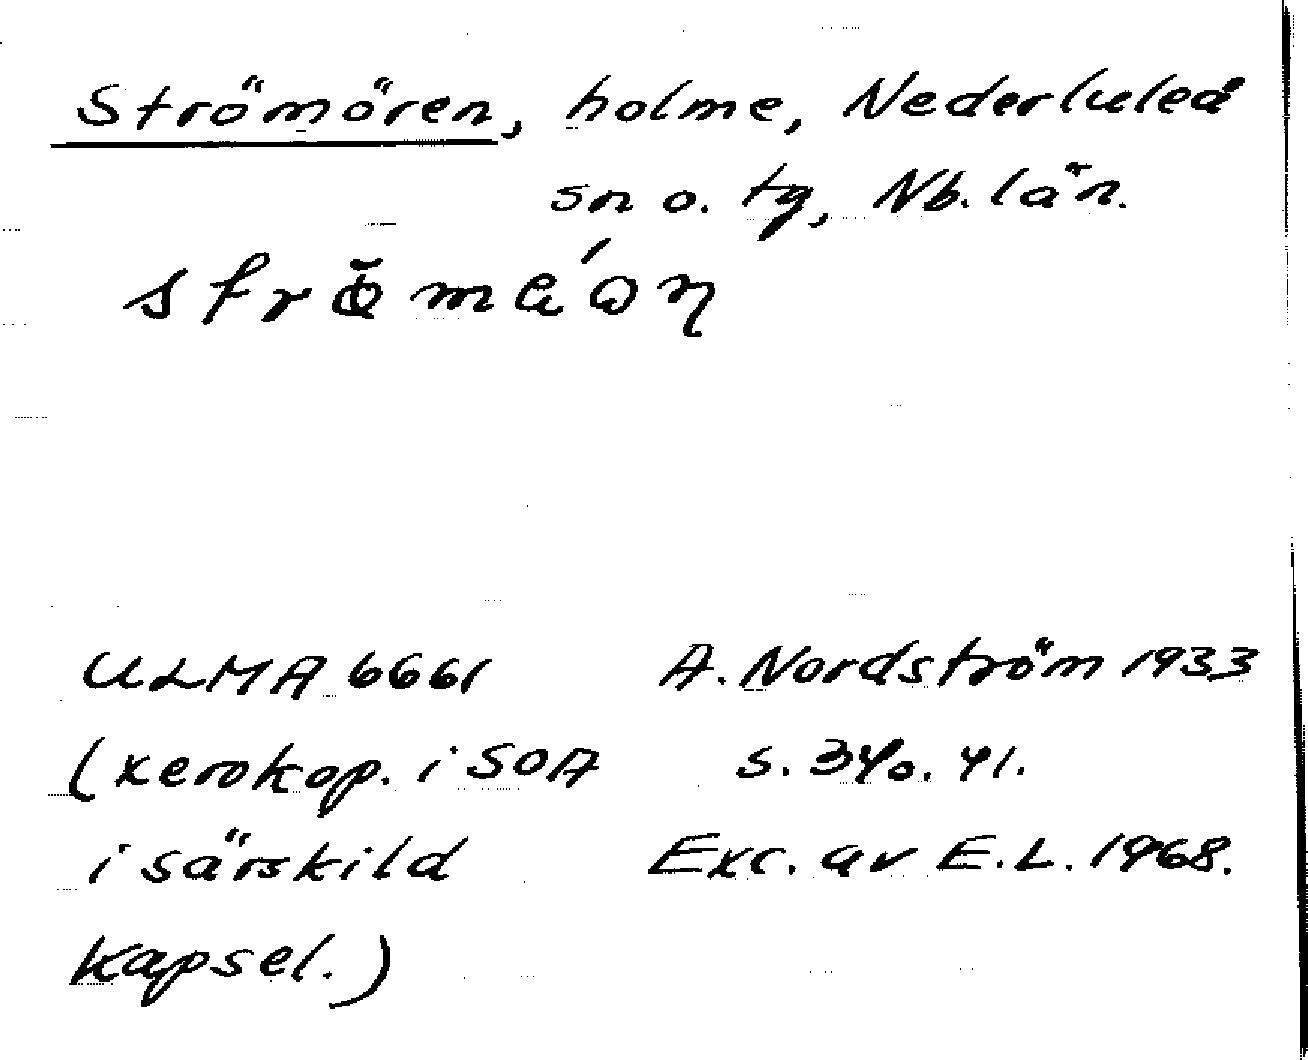 Strömören, holme, Nederluleå
sn o. tg, Nb. län.
ULMA 6661 A. Nordström 1933
(xerokop. i SOA s. 340. 41.
i särskild Exc. av E.L. 1968.
kapsel.)